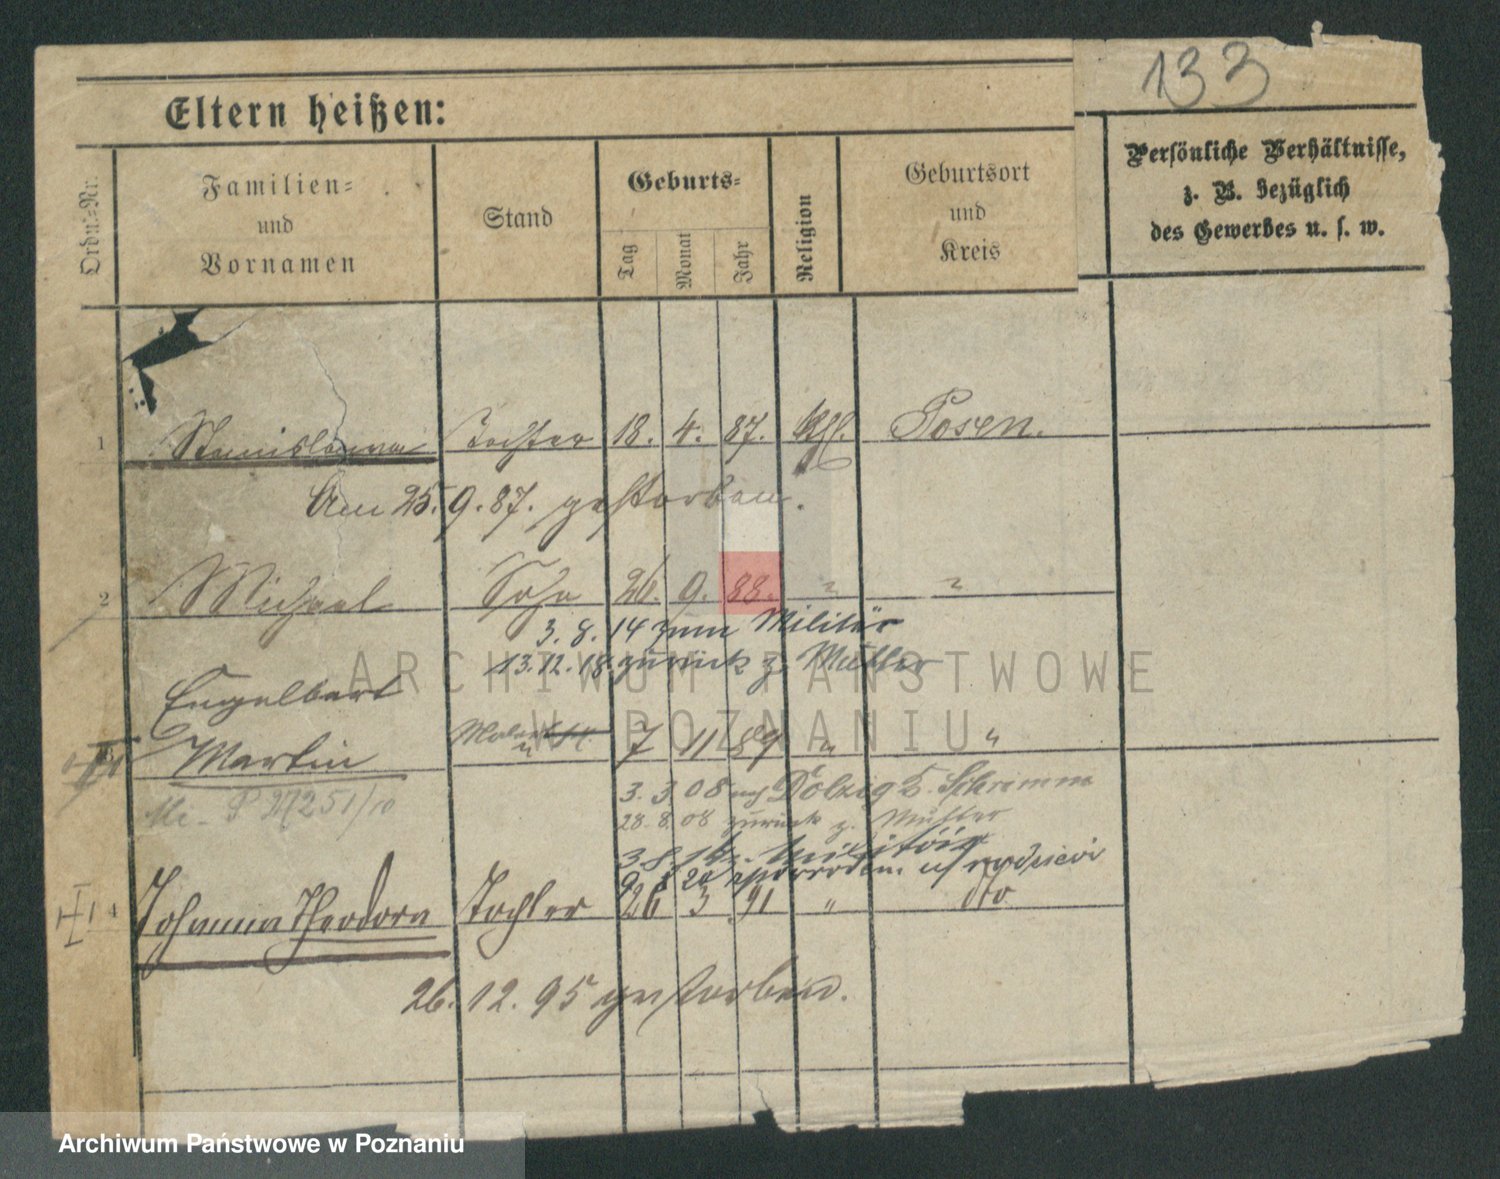 133
Eltern heißen:
Ordn.=Nr.
Familien=
und
Vornamen
Stand
Geburts=
Tag
Monat
Jahr
Religion
Geburtsort
und
Kreis
Persönliche Verhältnisse,
z. B. bezüglich
des Gewerbes u. s. w.
1 Stanislawa Tochter 18. 4. 87. kath. Posen.
Am 25. 9. 87. gestorben.
2 Michael Sohn 26. 9. 88. " "
3. 8. 14 zum Militär
13. 12. 18. zurück z. Mutter
Engelbert
Martin 7 11 89 " "
3. 3 08 nach Dolzig b. Schramm
28. 8. 08 zurück z. Mutter
3. 8. Militär
4 Johanna Theodora Tochter 26 3 91 " dto
26. 12. 95 gestorben.
ARCHIWUM PAŃSTWOWE
W POZNANIU
Archiwum Państwowe w Poznaniu